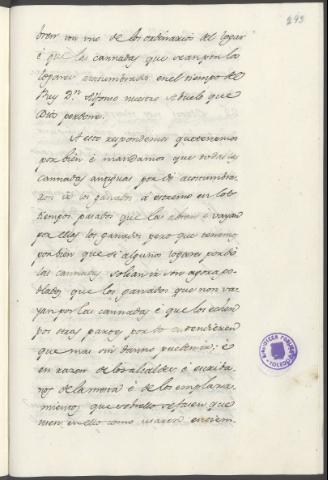 293
otros con uno de los ordinarios del logar
é que las cannadas que sean por los
logares acostumbrados en el tiempo del
Rey Dn. Alfonso nuestro Aduelo que
Dios perdone.
A esto respondemos que tenemos
por bien é mandamos que todas las
cannadas antiguas por dó acostumbra-
ron ir los ganados á estremo en los
tiempos pasados que las abran é vayan
por ellas los ganados pero que tenemos
por bien que si algunos logares por dó
las cannadas solian ir son agora po-
blados que los ganados que non va-
yan por las cannadas é que los echen
por otras partes por dó entendieren
que mas sin danno pudieren ir; é
en razon de los alcaldes é escriba-
nos de la mesta é de los emplaza-
mientos que sobrello se facen que
usen en ello como usaron en tiem.
BIBLIOTECA PUBLICA
TOLEDO